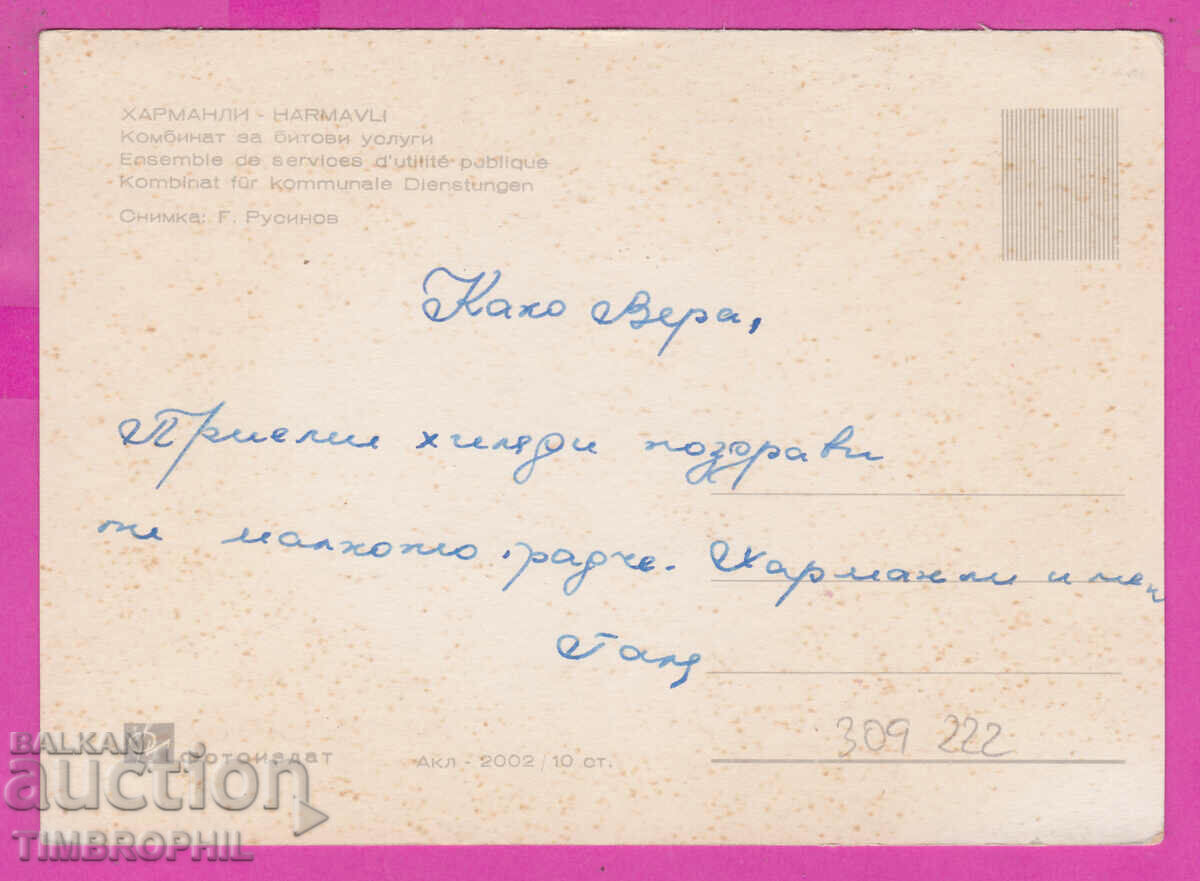 ХАРМАНЛИ - HARMAVLI
Комбинат за битови услуги
Ensemble de services d'utilité poblique
Kombinat für kommunale Dienstungen
Снимка: Г. Русинов
Како Вера,
Приеми хиляди поздрави
малкото градче. Харманли и мен
Галя
309 222
Фотоиздат
Акл - 2002 / 10 ст.
BALKAN
auction
TIMBROPHIL